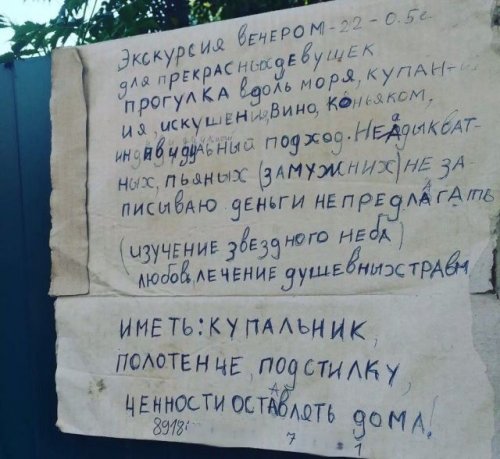 ЭКСКУРСИЯ ВЕЧЕРОМ-22-0.5
ДЛЯ ПРЕКРАСНЫХ ДЕВУШЕК
ПРОГУЛКА ВДОЛЬ МОРЯ, КУПАН-
ИЯ, ИСКУШЕНИЯ, ВИНО, КОНЬЯКОМ,
ИНДИВИДУАЛЬНЫЙ ПОДХОД. НЕАДЫКВАТ-
НЫХ, ПЬЯНЫХ (ЗАМУЖНИХ) НЕ ЗА-
ПИСЫВАЮ. ДЕНЬГИ НЕ ПРЕДЛАГАТЬ
(ИЗУЧЕНИЕ ЗВЕЗДНОГО НЕБА)
ЛЮБОВЬ, ЛЕЧЕНИЕ ДУШЕВНЫХ ТРАВМ
ИМЕТЬ: КУПАЛЬНИК,
ПОЛОТЕНЦЕ, ПОДСТИЛКУ,
ЦЕННОСТИ ОСТАВЛЯТЬ ДОМА!
8918 7 1